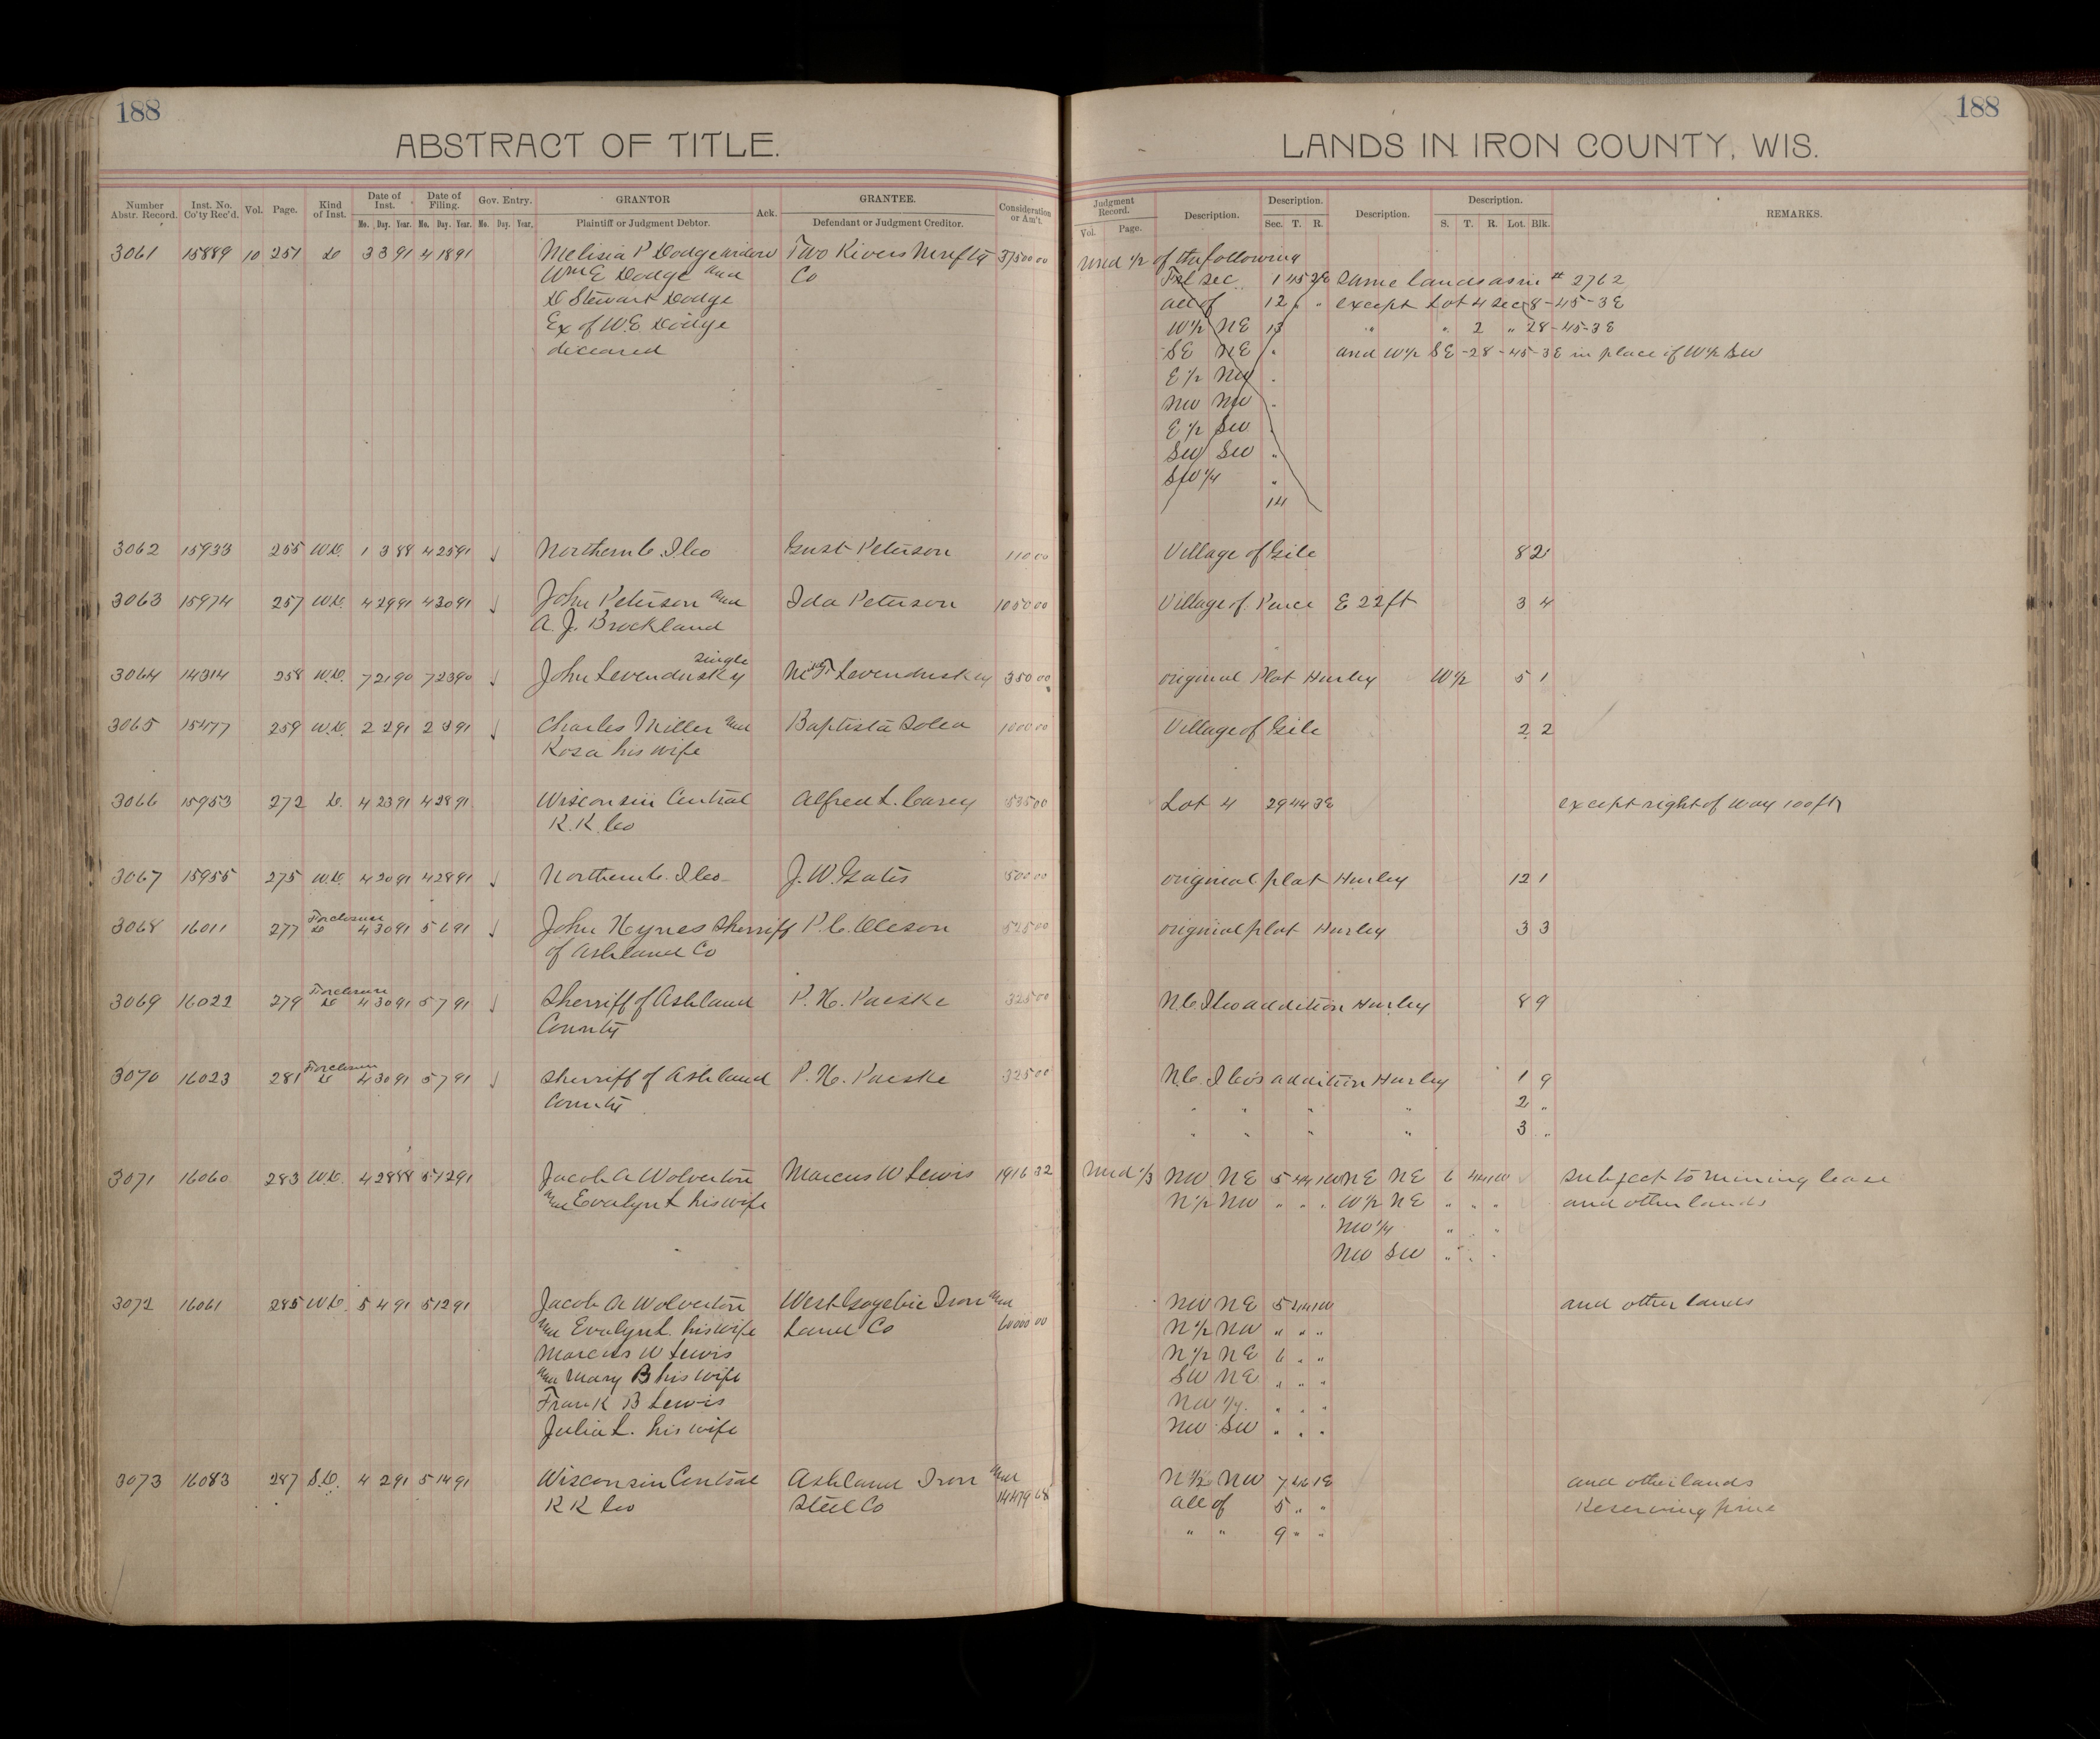 188
188
ABSTRACT OF TITLE.
LANDS IN IRON COUNTY, WIS.
Number Abstr. Record. Inst. No. Co'ty Rec'd. Vol. Page. Kind of Inst. Date of Inst. Mo. Day. Year. Date of Filing. Mo. Day. Year. Gov. Entry. Mo. Day. Year. GRANTOR Plaintiff or Judgment Debtor. Ack. GRANTEE. Defendant or Judgment Creditor. Consideration or Am't.
Judgment Record. Vol. Page. Description. Description. Sec. T. R. Description. Description. S. T. R. Lot. Blk. REMARKS.
3061 15889 10 251 D 3 3 91 4 18 91 Melisia P Dodge widow Two Rivers Mnftg 37500 00 Und 1/2 of the following
Wm E Dodge and Co Frl Sec 1 45 2E Same lands as in # 2762
D Stewart Dodge all of 12 " " except Lot 4 Sec 8-45-3E
Ex of W.E. Dodge W1/2 NE 13 " " 2 " 28-45-3E
diceased SE NE " and W1/2 SE-28-45-3E in place of W1/2 SW
E1/2 NW "
NW NW "
E1/2 SW "
SW SW "
SW1/4 "
14
3062 15933 255 W.D. 1 3 88 4 25 91 Northern C. I. Co Gust Peterson 110 00 Village of Gile 8 2
3063 15974 257 W.D. 4 29 91 4 30 91 John Peterson and Ida Peterson 1050 00 Village of Pence E 22 ft 3 4
A. J. Brockland
3064 14314 258 W.D. 7 21 90 7 23 90 John Levendusky single Levendusky 350 00 original Plat Hurley W1/2 5 1
3065 15477 259 W.D. 2 2 91 2 3 91 Charles Miller and Baptista Solea 1000 00 Village of Gile 2 2
Rosa his wife
3066 15953 272 D. 4 23 91 4 28 91 Wisconsin Central Alfred L. Carey 535 00 Lot 4 29 44 3E except right of way 100 ft
R.R. Co
3067 15955 275 W.D. 4 20 91 4 28 91 Northern C. I. Co J. W. Gates 500 00 original plat Hurley 12 1
3068 16011 277 Forclosure D 4 30 91 5 6 91 John Hynes Sherriff P. C. Oleson 525 00 original plat Hurley 3 3
of Ashland Co
3069 16022 279 Forclosure D 4 30 91 5 7 91 Sherriff of Ashland P. H. Paeske 325 00 N. C. I Co addition Hurley 8 9
County
3070 16023 281 Forclosure D 4 30 91 5 7 91 Sherriff of Ashland P. H. Paeske 325 00 N. C. I Co's addition Hurley 1 9
County " " " " 2 "
" " " " 3 "
3071 16060 283 W.D. 4 28 88 5 12 91 Jacob A Wolverton Marcus W Lewis 1916 32 Und 1/3 NW NE 5 44 1W NE NE 6 44 1W Subject to mining lease
and Evalyn L his wife N1/2 NW " " " W1/2 NE " " " and other lands
NW1/4 " " "
NW SW " " "
3072 16061 285 W.D. 5 4 91 5 12 91 Jacob A Wolverton West Gogebic Iron and NW NE 5 44 1W and other lands
and Evalyn L. his wife Land Co 60000 00 N1/2 NW " " "
Marcus W Lewis N1/2 NE 6 " "
and Mary B his wife SW NE " " "
Frank B Lewis NW1/4 " " "
Julia L. his wife NW SW " " "
3073 16083 287 S.D. 4 2 91 5 14 91 Wisconsin Central Ashland Iron and N1/2 NW 7 46 1E and other lands
R R Co Steel Co 14479 68 all of 5 " " Reserving pine
" " 9 " "